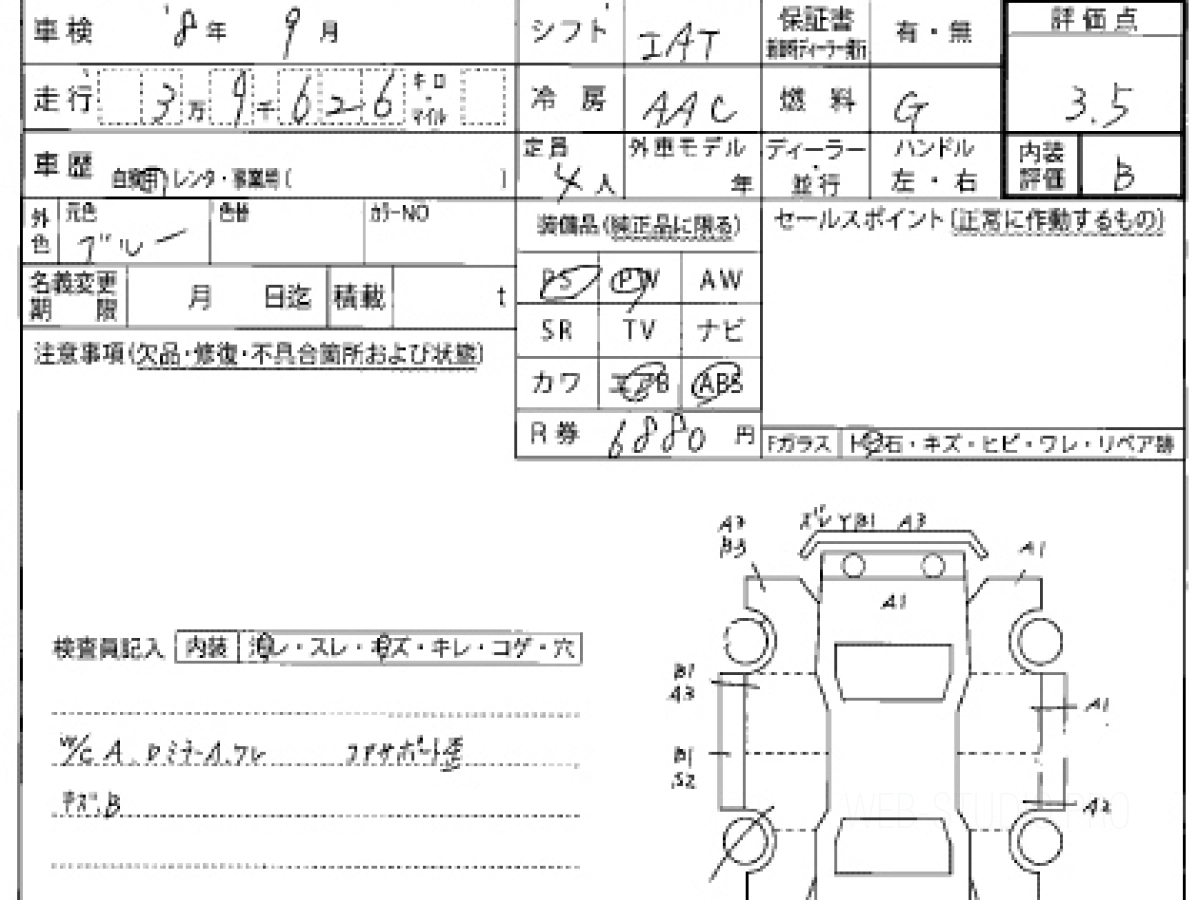 車検 '8年 9月 シフト IAT 保証書 新車時ディーラー発行 有・無 評価点
走行 3万9千626 キロ・マイル 冷房 AAC 燃料 G 3.5
車歴 自家用・レンタ・事業用( ) 定員 4人 外車モデル 年 ディーラー・並行 ハンドル 左・右 内装評価 B
外色 元色 ブルー 色替 カラーNO 装備品(純正品に限る) セールスポイント(正常に作動するもの)
名義変更期限 月 日迄 積載 t PS PW AW
SR TV ナビ
注意事項(欠品・修復・不具合箇所および状態)
カワ エアB ABS
R券 6880円 Fガラス 飛石・キズ・ヒビ・ワレ・リペア跡
A3 B3 ズレ YB1 A3 A1
A1
検査員記入 内装 汚レ・スレ・キズ・キレ・コゲ・穴
B1 A3 A1
W/C A、 コアサポート
B1 S2
キズB A2
WEB-STUDIO PRO